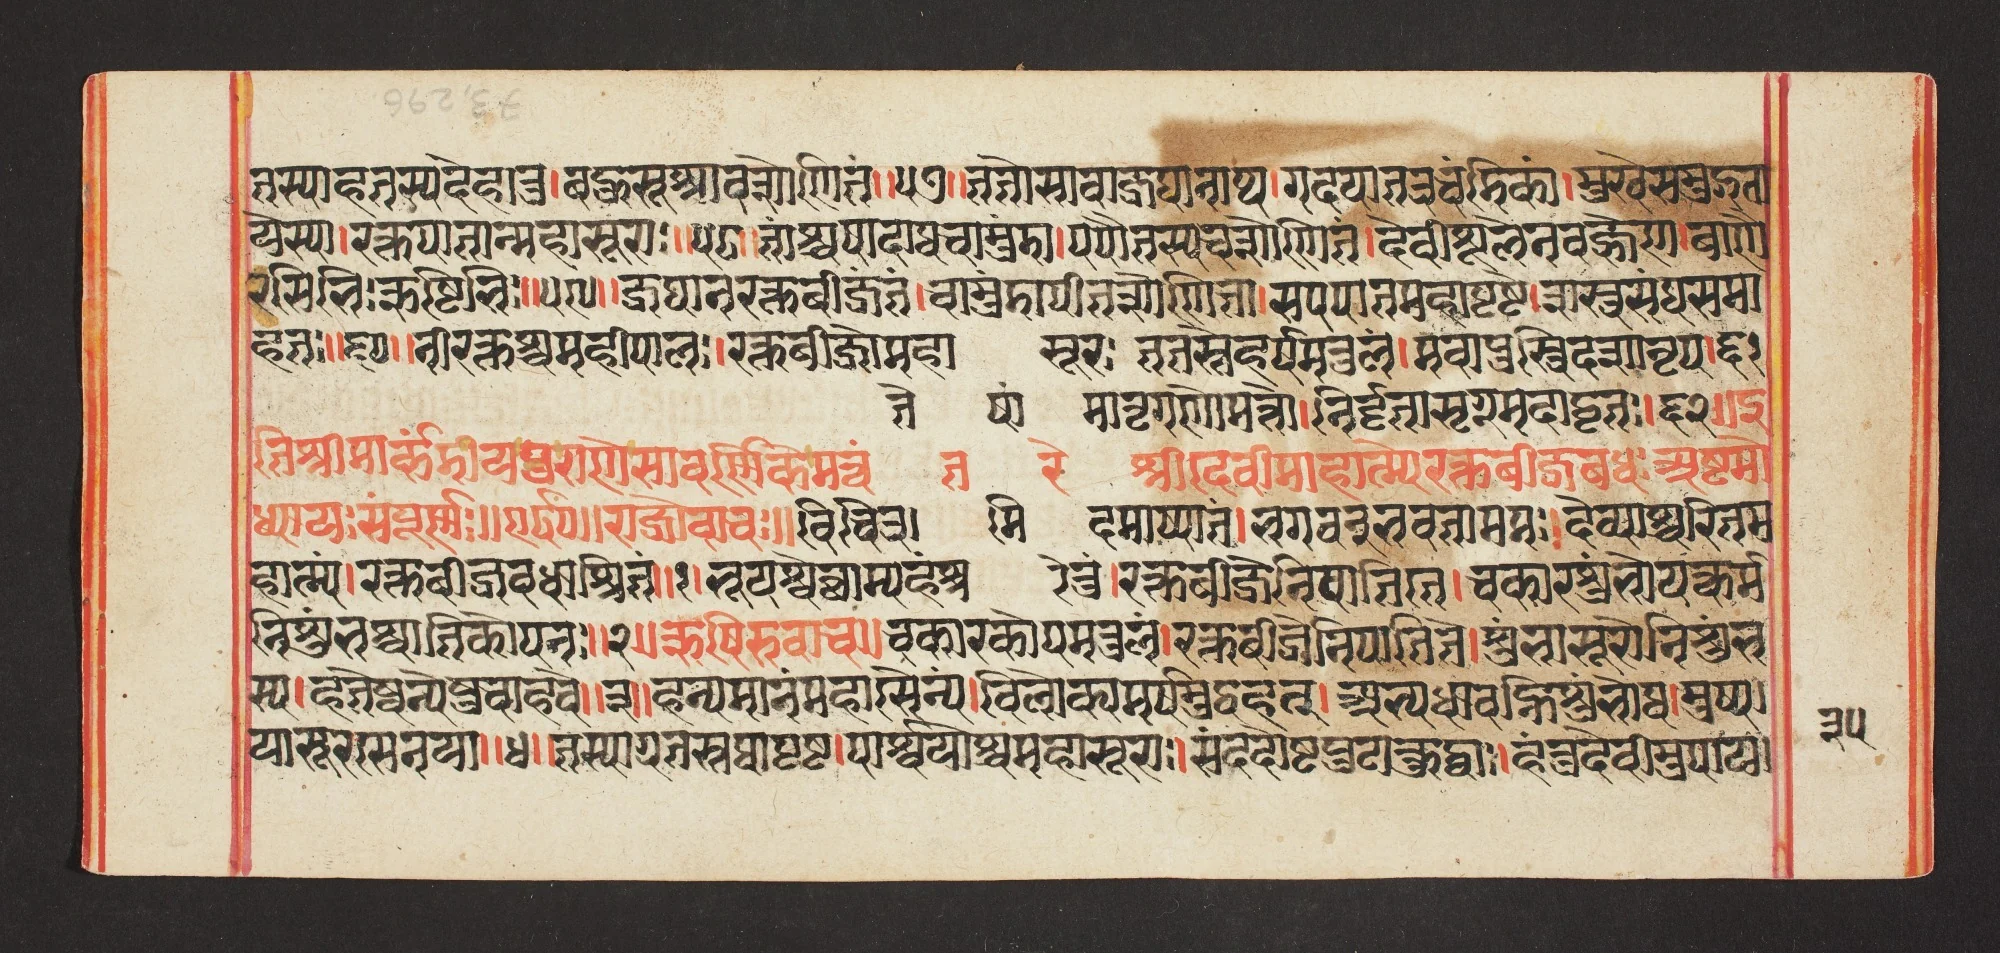 तस्याहतस्यदेहात्तु।बहुसूश्रावशोणितं॥५७॥ततोसावाजघानाथ।गदयातत्रचंडिकां।मुखेसमुद्गता
येस्या।रक्तपातान्महासूराः॥५८॥तांश्चषादाथचामुंडा।पपौतस्यचशोणितं।देवीशूलेनवज्रेण।बाणै
रसिभिःऋष्टिभिः॥५९॥जघानरक्तबीजंतं।चामुंडापीतशोणितं।सपपातमहीपृष्टे।शस्त्रसंघसमा
हतः॥६०॥नीरक्तश्चमहीपालः।रक्तबीजोमहा सूरः ततस्तेहर्षमतुलं।मवापुस्त्रिदशानृप।६१
ते षां मातृगणोमत्तो।ननिर्तासृग्मदोद्धतः।६२॥इ
तिश्रीमार्कंडेयपुराणेसावर्णिकेमन्वं त रे श्रीदेवीमाहात्म्येरक्तबीजबधःअष्टमो
ध्यायः संपूर्णः॥राजोवाचः॥विचित्र। मि दमाष्यातं।भगवन्भवतामम।देव्याश्चरितम
हात्म्यं।रक्तबीजवधाश्रितं॥१।भूयश्चेच्छाम्यहंश्रो तुं।रक्तबीजेनिपातिते।चकारशुंभोयत्कर्म
निशुंभश्चातिकोपनः॥२॥ऋषिरुवाच॥चकारकोपमतुलं।रक्तबीजेनिपातिते।शुंभासूरोनिशुंभ
स्य।हतेष्वन्येषुचाहवे॥३॥हन्यमानंमहासैन्यं।विलोक्यामर्षमुद्वहन्।अभ्यधावन्निशुंभोथ।मुष्य
यासूरसेनया॥४॥तस्याग्रतस्तथापृष्टे।पार्श्वयोश्चमहासूराः।संदष्टौष्टपुटाक्रुद्धाः।हंतुंदेवीमुपाय
३५
73,296